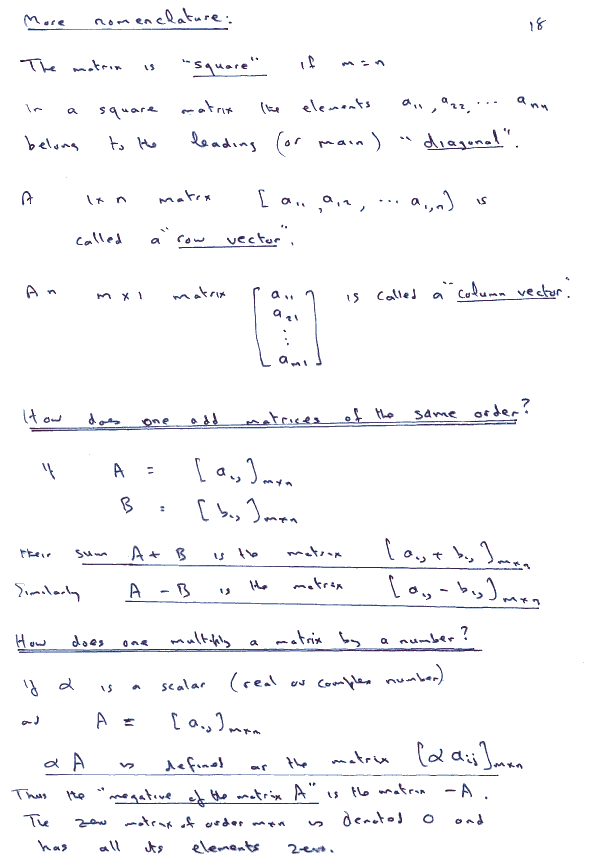 More nomenclature: 18
The matrix is "square" if m=n
In a square matrix the elements a₁₁, a₂₂, ... aₙₙ
belong to the leading (or main) "diagonal".
A 1×n matrix [a₁₁, a₁₂, ... a₁,ₙ] is
called a "row vector".
An m×1 matrix [a₁₁ a₂₁ ⋮ aₘ₁] is called a "column vector".
How does one add matrices of the same order?
If A = [aᵢⱼ]ₘ×ₙ
B = [bᵢⱼ]ₘ×ₙ
their sum A+B is the matrix [aᵢⱼ + bᵢⱼ]ₘ×ₙ
Similarly A-B is the matrix [aᵢⱼ - bᵢⱼ]ₘ×ₙ
How does one multiply a matrix by a number?
If α is a scalar (real or complex number)
and A = [aᵢⱼ]ₘ×ₙ
αA is defined as the matrix [α aᵢⱼ]ₘ×ₙ
Thus the "negative of the matrix A" is the matrix -A.
The zero matrix of order m×n is denoted 0 and
has all its elements zero.